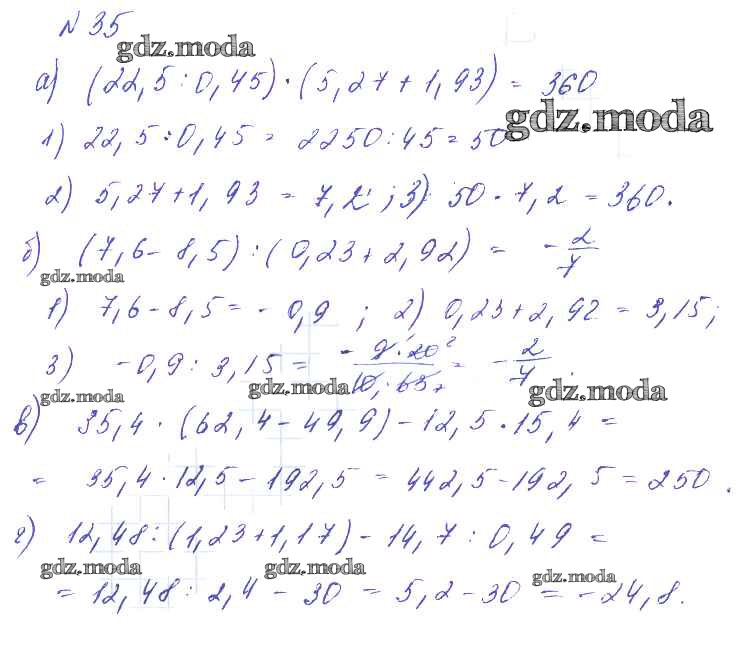 № 35
gdz.moda
а) (22,5 : 0,45) · (5,27 + 1,93) = 360
gdz.moda
1) 22,5 : 0,45 = 2250 : 45 = 50
2) 5,27 + 1,93 = 7,2 ; 3) 50 · 7,2 = 360.
б) (7,6 - 8,5) : (0,23 + 2,92) = - 2/7
gdz.moda
1) 7,6 - 8,5 = - 0,9 ; 2) 0,23 + 2,92 = 3,15 ;
3) - 0,9 : 3,15 = - 9 · 20 2 / 10 · 63 7 = - 2/7
gdz.moda gdz.moda gdz.moda
в) 35,4 · (62,4 - 49,9) - 12,5 · 15,4 =
= 35,4 · 12,5 - 192,5 = 442,5 - 192,5 = 250.
г) 12,48 : (1,23 + 1,17) - 14,7 : 0,49 =
gdz.moda gdz.moda gdz.moda
= 12,48 : 2,4 - 30 = 5,2 - 30 = - 24,8.